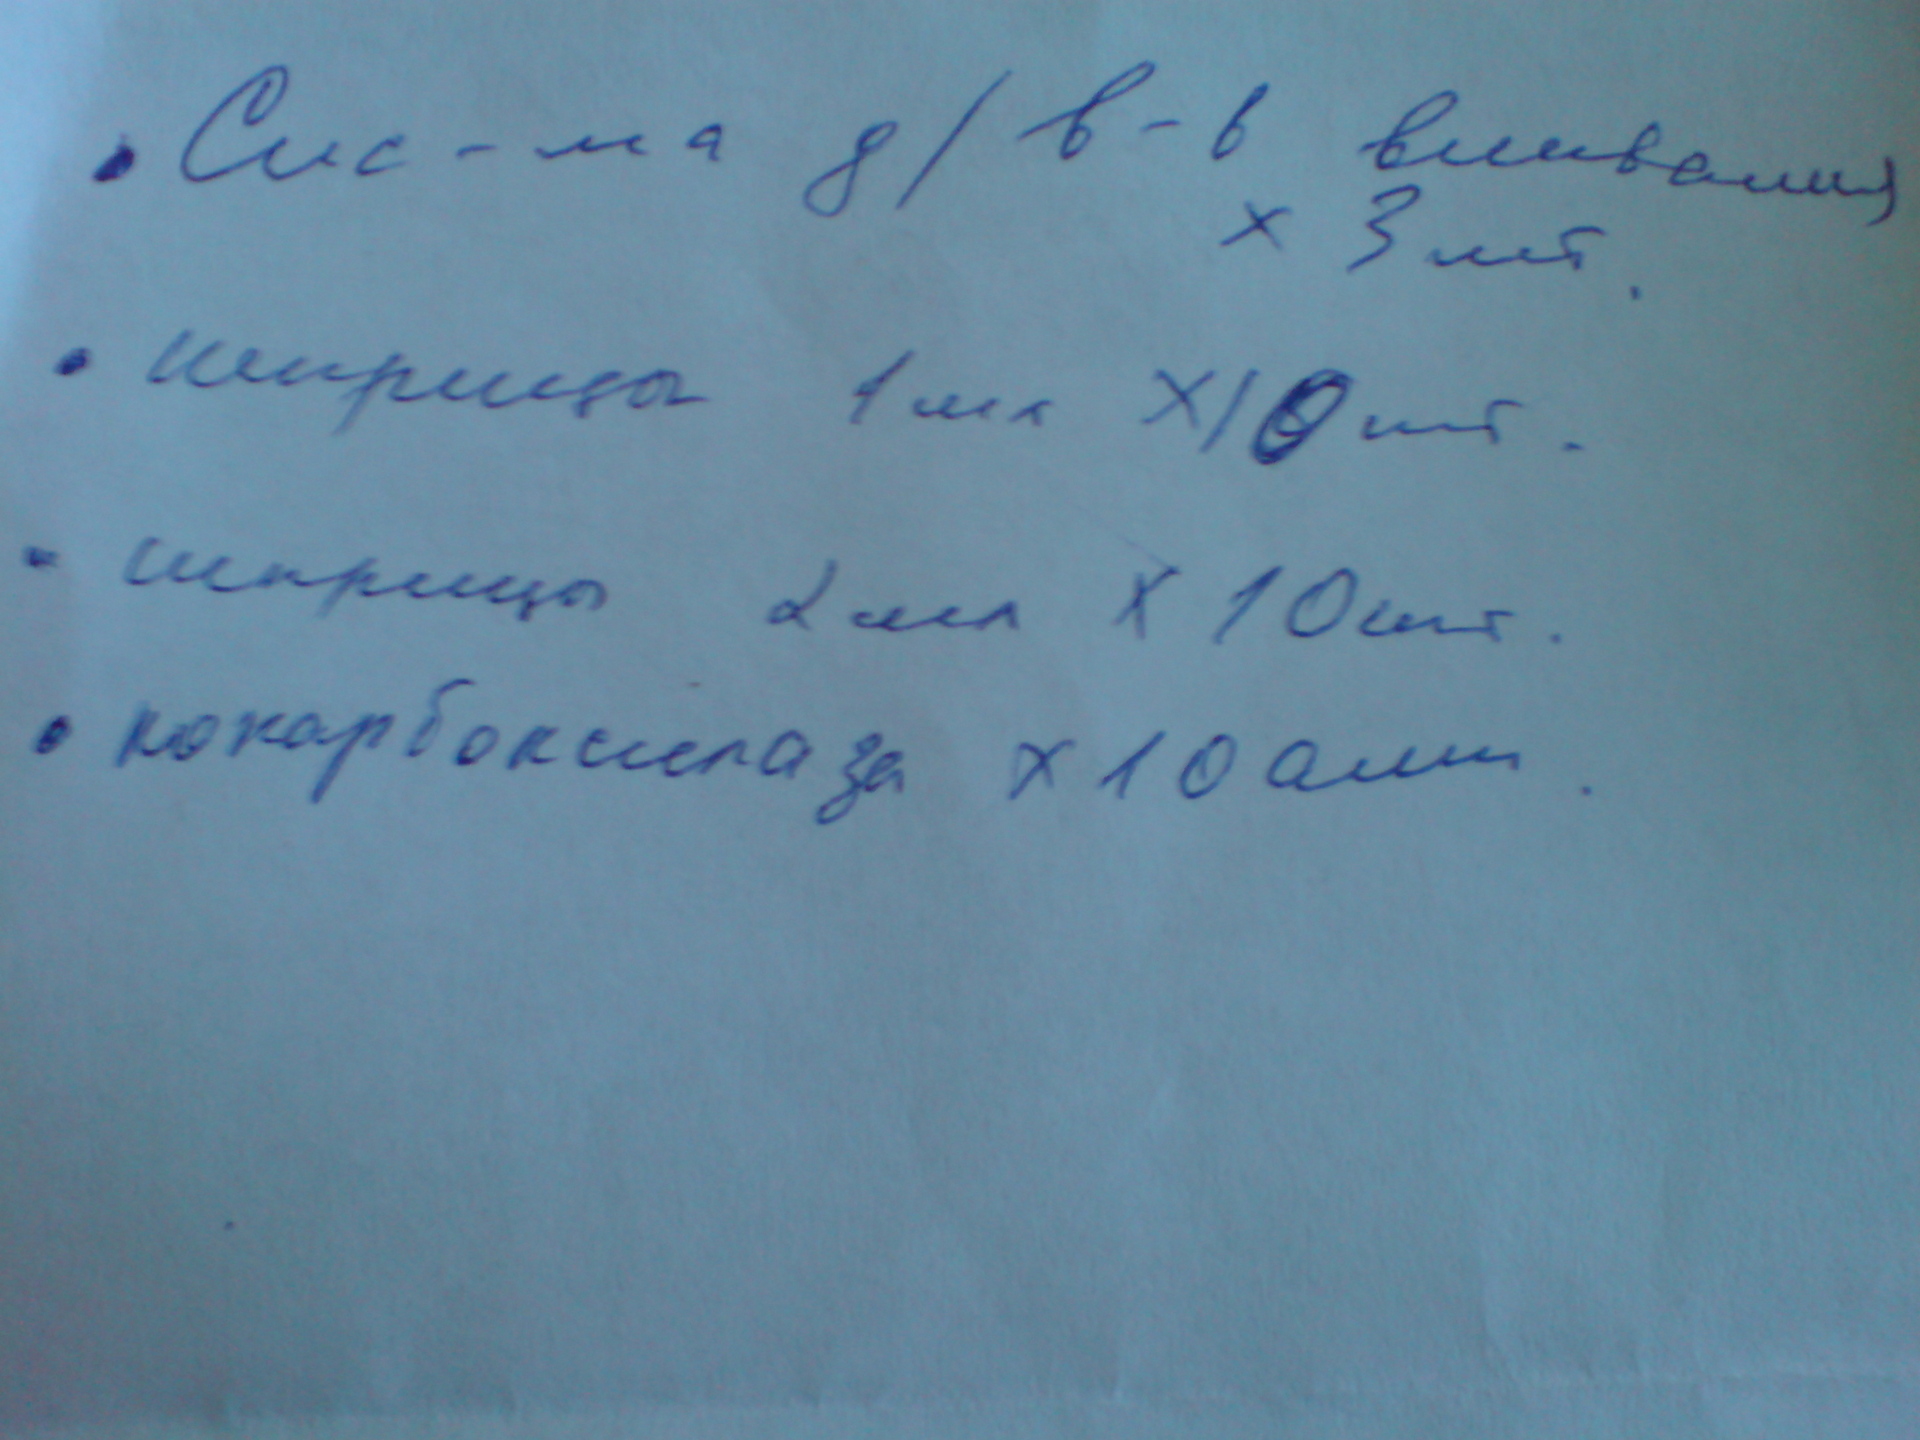 • Сис-ма д/ в-в вливания
х 3 шт.
• шприцы 1 мл х 10 шт.
• шприцы 2 мл х 10 шт.
• кокарбоксилаза х 10 амп.